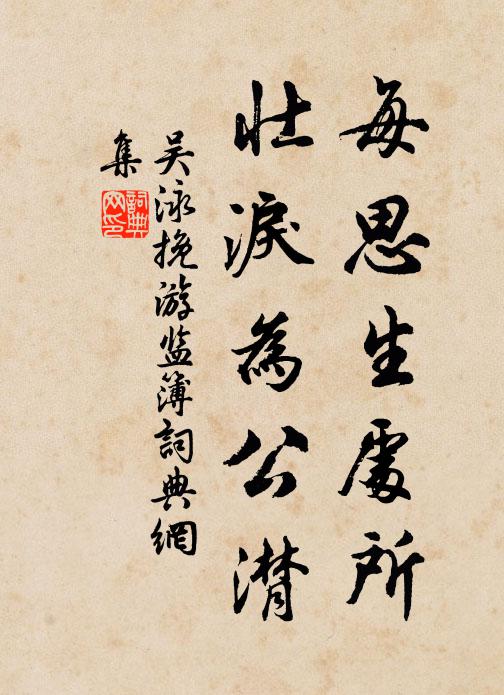 每思生處所
壯淚為公潸
吴泳挽游监簿詞典網
集
詞典
网印